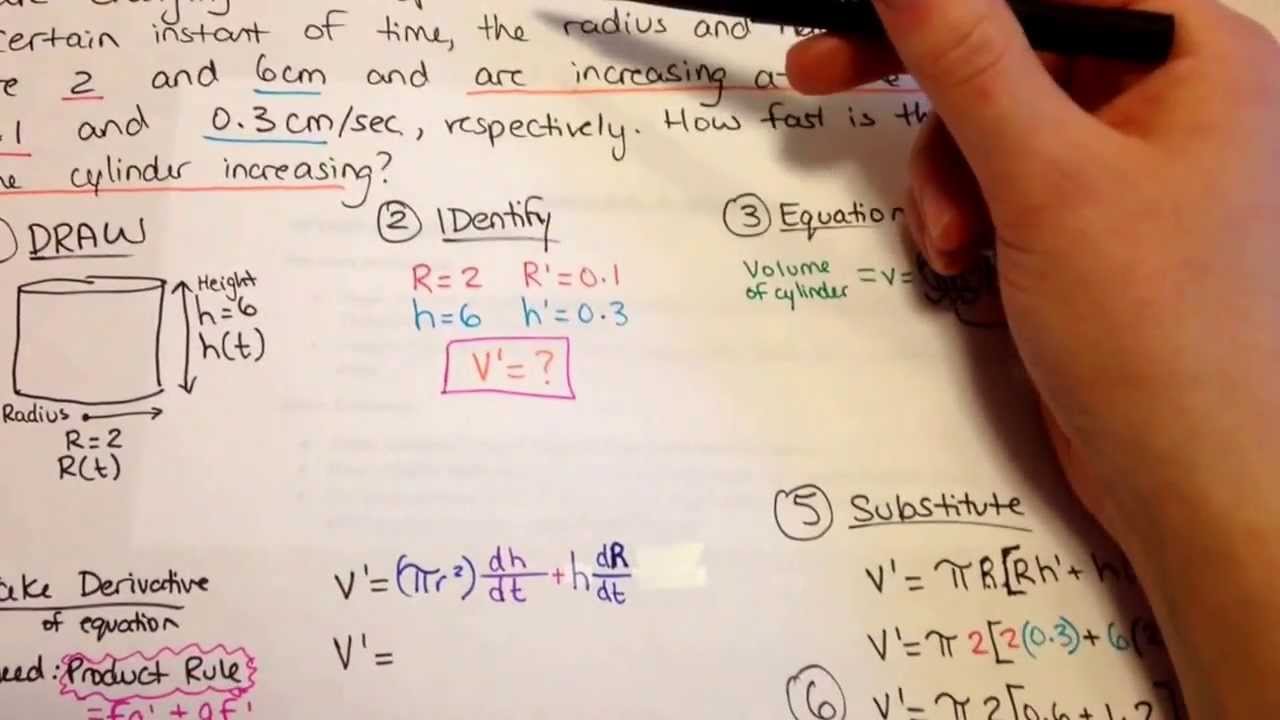 certain instant of time, the radius and
re 2 and 6cm and are increasing at
.1 and 0.3 cm/sec, respectively. How fast is th
he cylinder increasing?
DRAW
Height
h=6
h(t)
Radius
R=2
R(t)
② IDentify
R=2 R'=0.1
h=6 h'=0.3
V'=?
③ Equation
Volume
of cylinder =V=
ake Derivative
of equation
eed: Product Rule
=fg'+gf'
V'=(πr²) dh/dt + h dR/dt
V'=
⑤ Substitute
V'=πR[Rh'+h
V'=π2[2(0.3)+6(2
⑥ V'=π2[0.6+1.2]